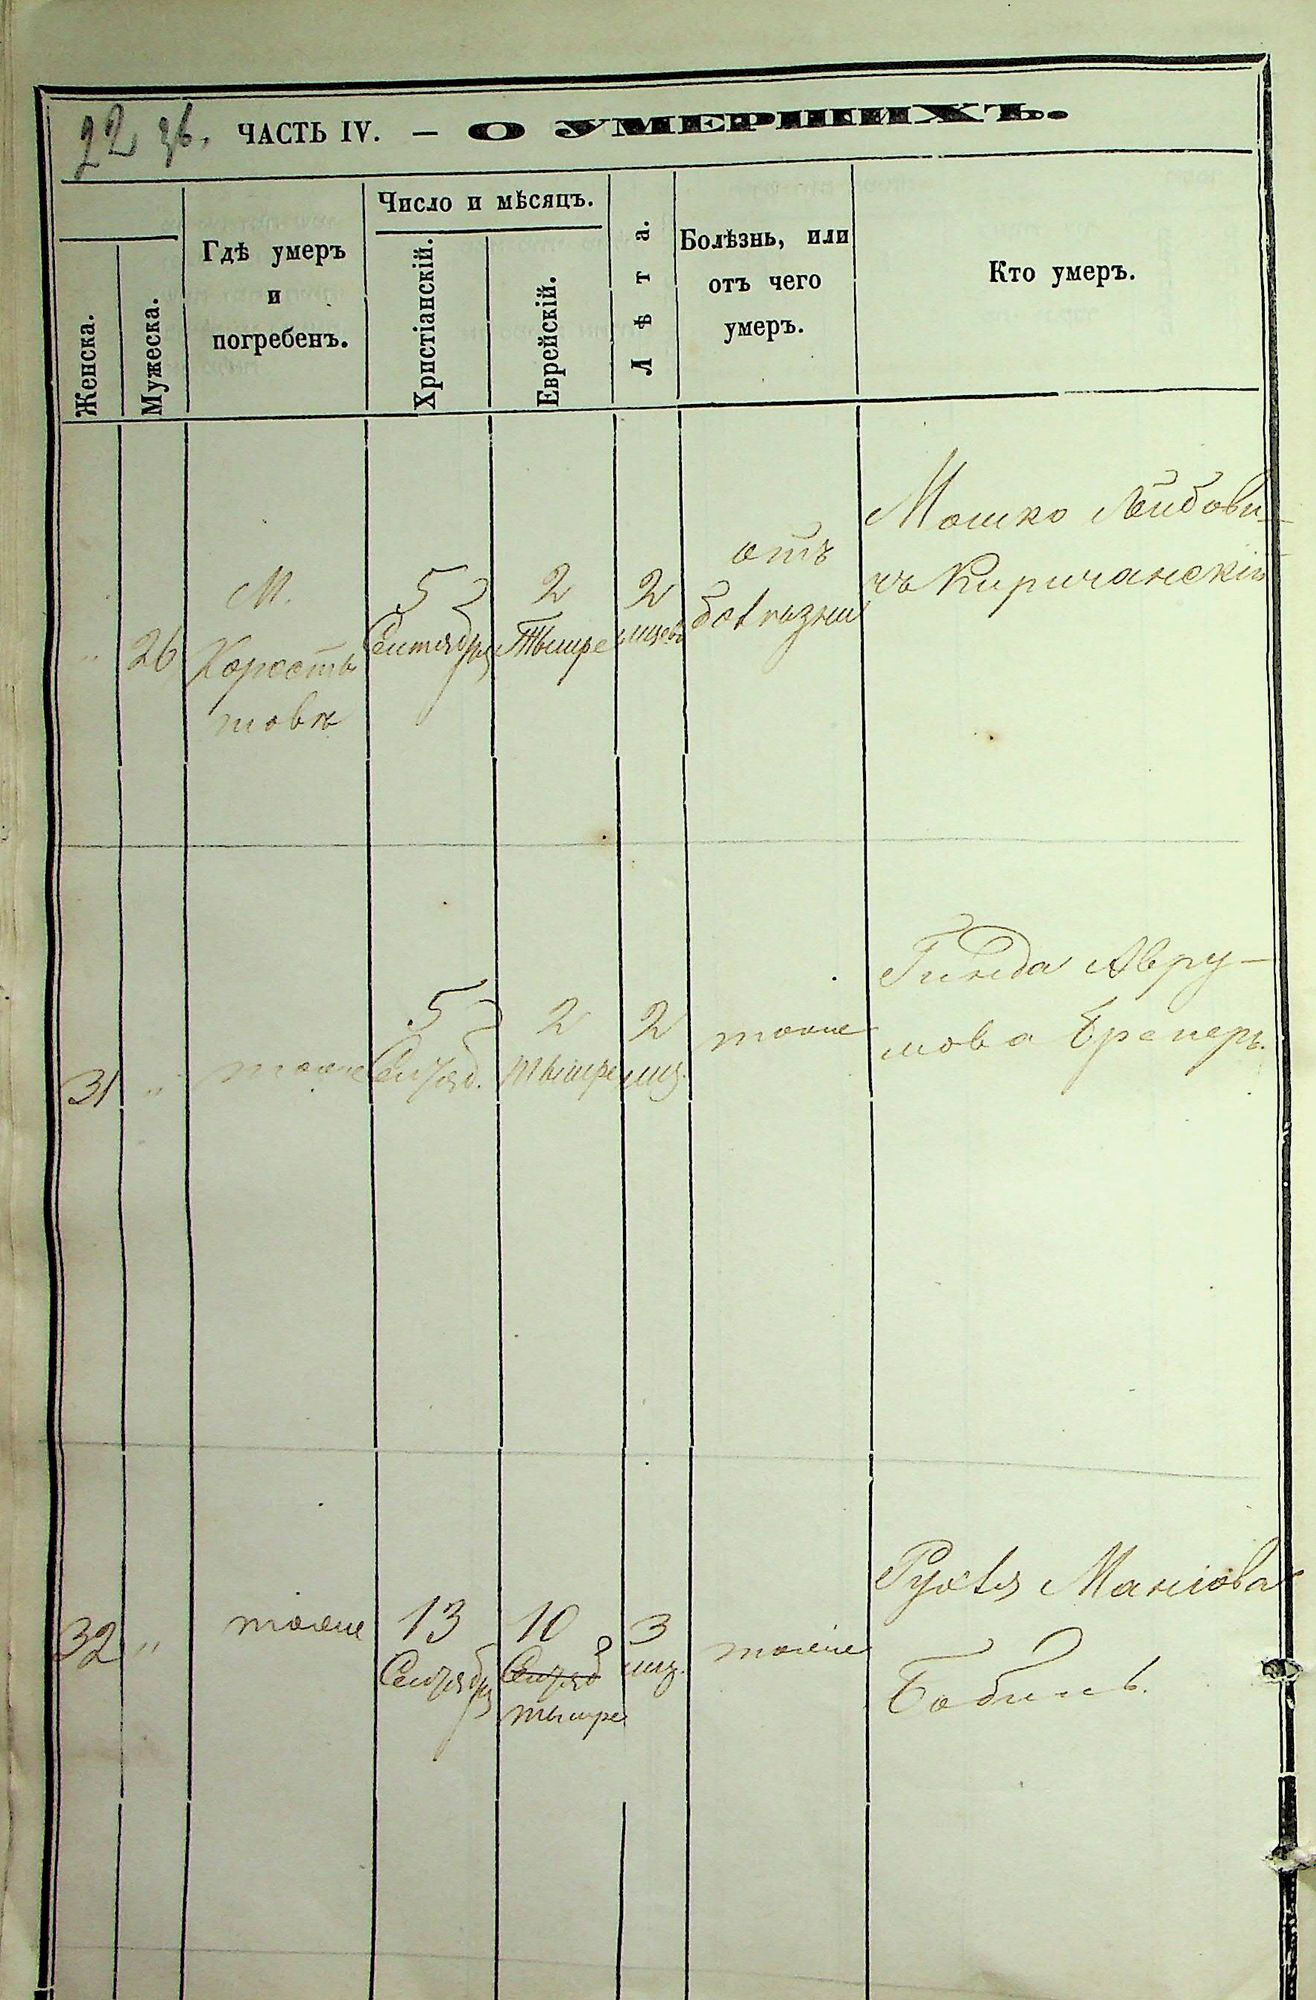 22 зв. ЧАСТЬ IV. — О УМЕРШИХЪ.
Женска.
Мужеска.
Гдѣ умеръ
и
погребенъ.
Число и мѣсяцъ.
Христіанскій.
Еврейскій.
Лѣта.
Болѣзнь, или
отъ чего
умеръ.
Кто умеръ.
" 26
М.
Коросты
шовѣ
5
Сентября
2
Тышре
2
отъ
болѣзни
Мошко Лейбови-
чъ Киричанскій
31 "
тоже
5
Сентяб.
2
тышре
2
мц.
тоже
Гинда Авру-
мова
32 "
тоже
13
Сентября
10
Сентяб
тышре
3
мц.
тоже
Рухля
Бобинъ.